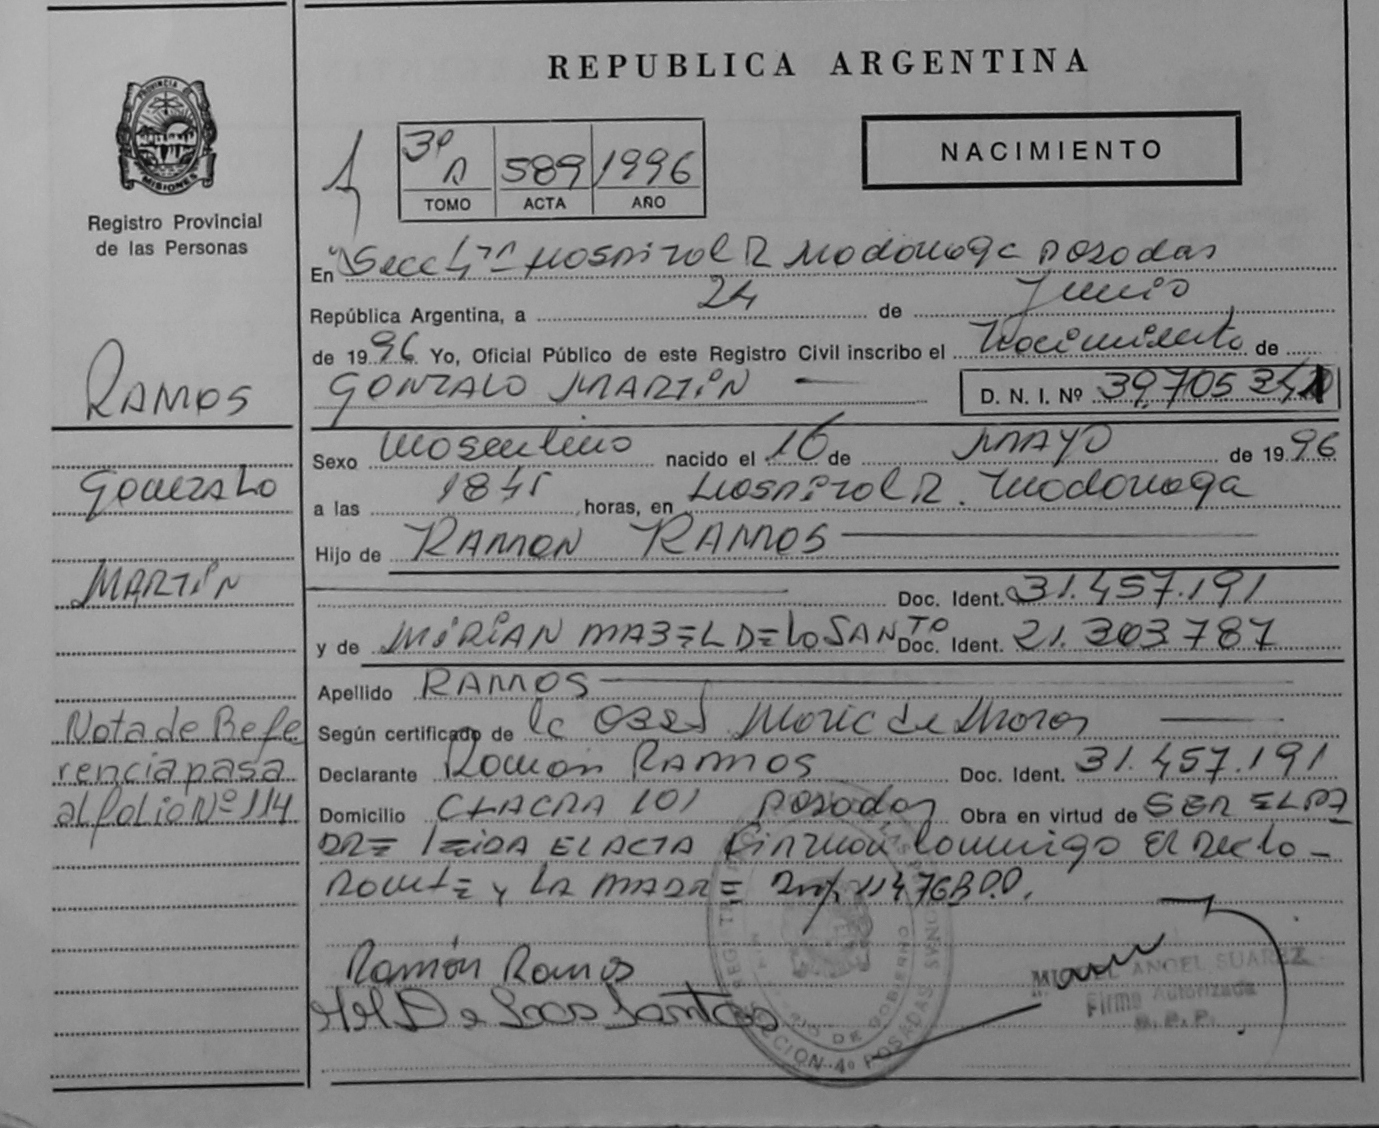 REPUBLICA ARGENTINA
PROVINCIA DE
MISIONES
Registro Provincial
de las Personas
3º A 589 1996
TOMO ACTA AÑO
NACIMIENTO
En Secc 4ta Hospital R Madariaga Posadas
República Argentina, a 24 de Junio
de 1996 Yo, Oficial Público de este Registro Civil inscribo el Nacimiento de
GONZALO MARTIN
D. N. I. Nº 39.705
RAMOS
GONZALO
MARTIN
Nota de Refe
rencia pasa
al folio Nº 114
Sexo Masculino nacido el 16 de MAYO de 1996
a las 1845 horas, en Hospital R. Madariaga
Hijo de RAMON RAMOS
Doc. Ident. 31.457.191
y de MIRIAN MABEL DE LO SANTO Doc. Ident. 21.303.787
Apellido RAMOS
Según certificado de la Obst Maria de
Declarante Ramón RAMOS Doc. Ident. 31.457.191
Domicilio CHACRA 101 Posadas Obra en virtud de SER EL PA
DRE LEIDA EL ACTA Firman conmigo El Decla-
rante y LA MADRE
Ramón Ramos
M M De Los Santos
MIGUEL ANGEL SUAREZ
Firma Autorizada
R. P. P.
DE GOBIERNO
SECCION 4º POSADAS